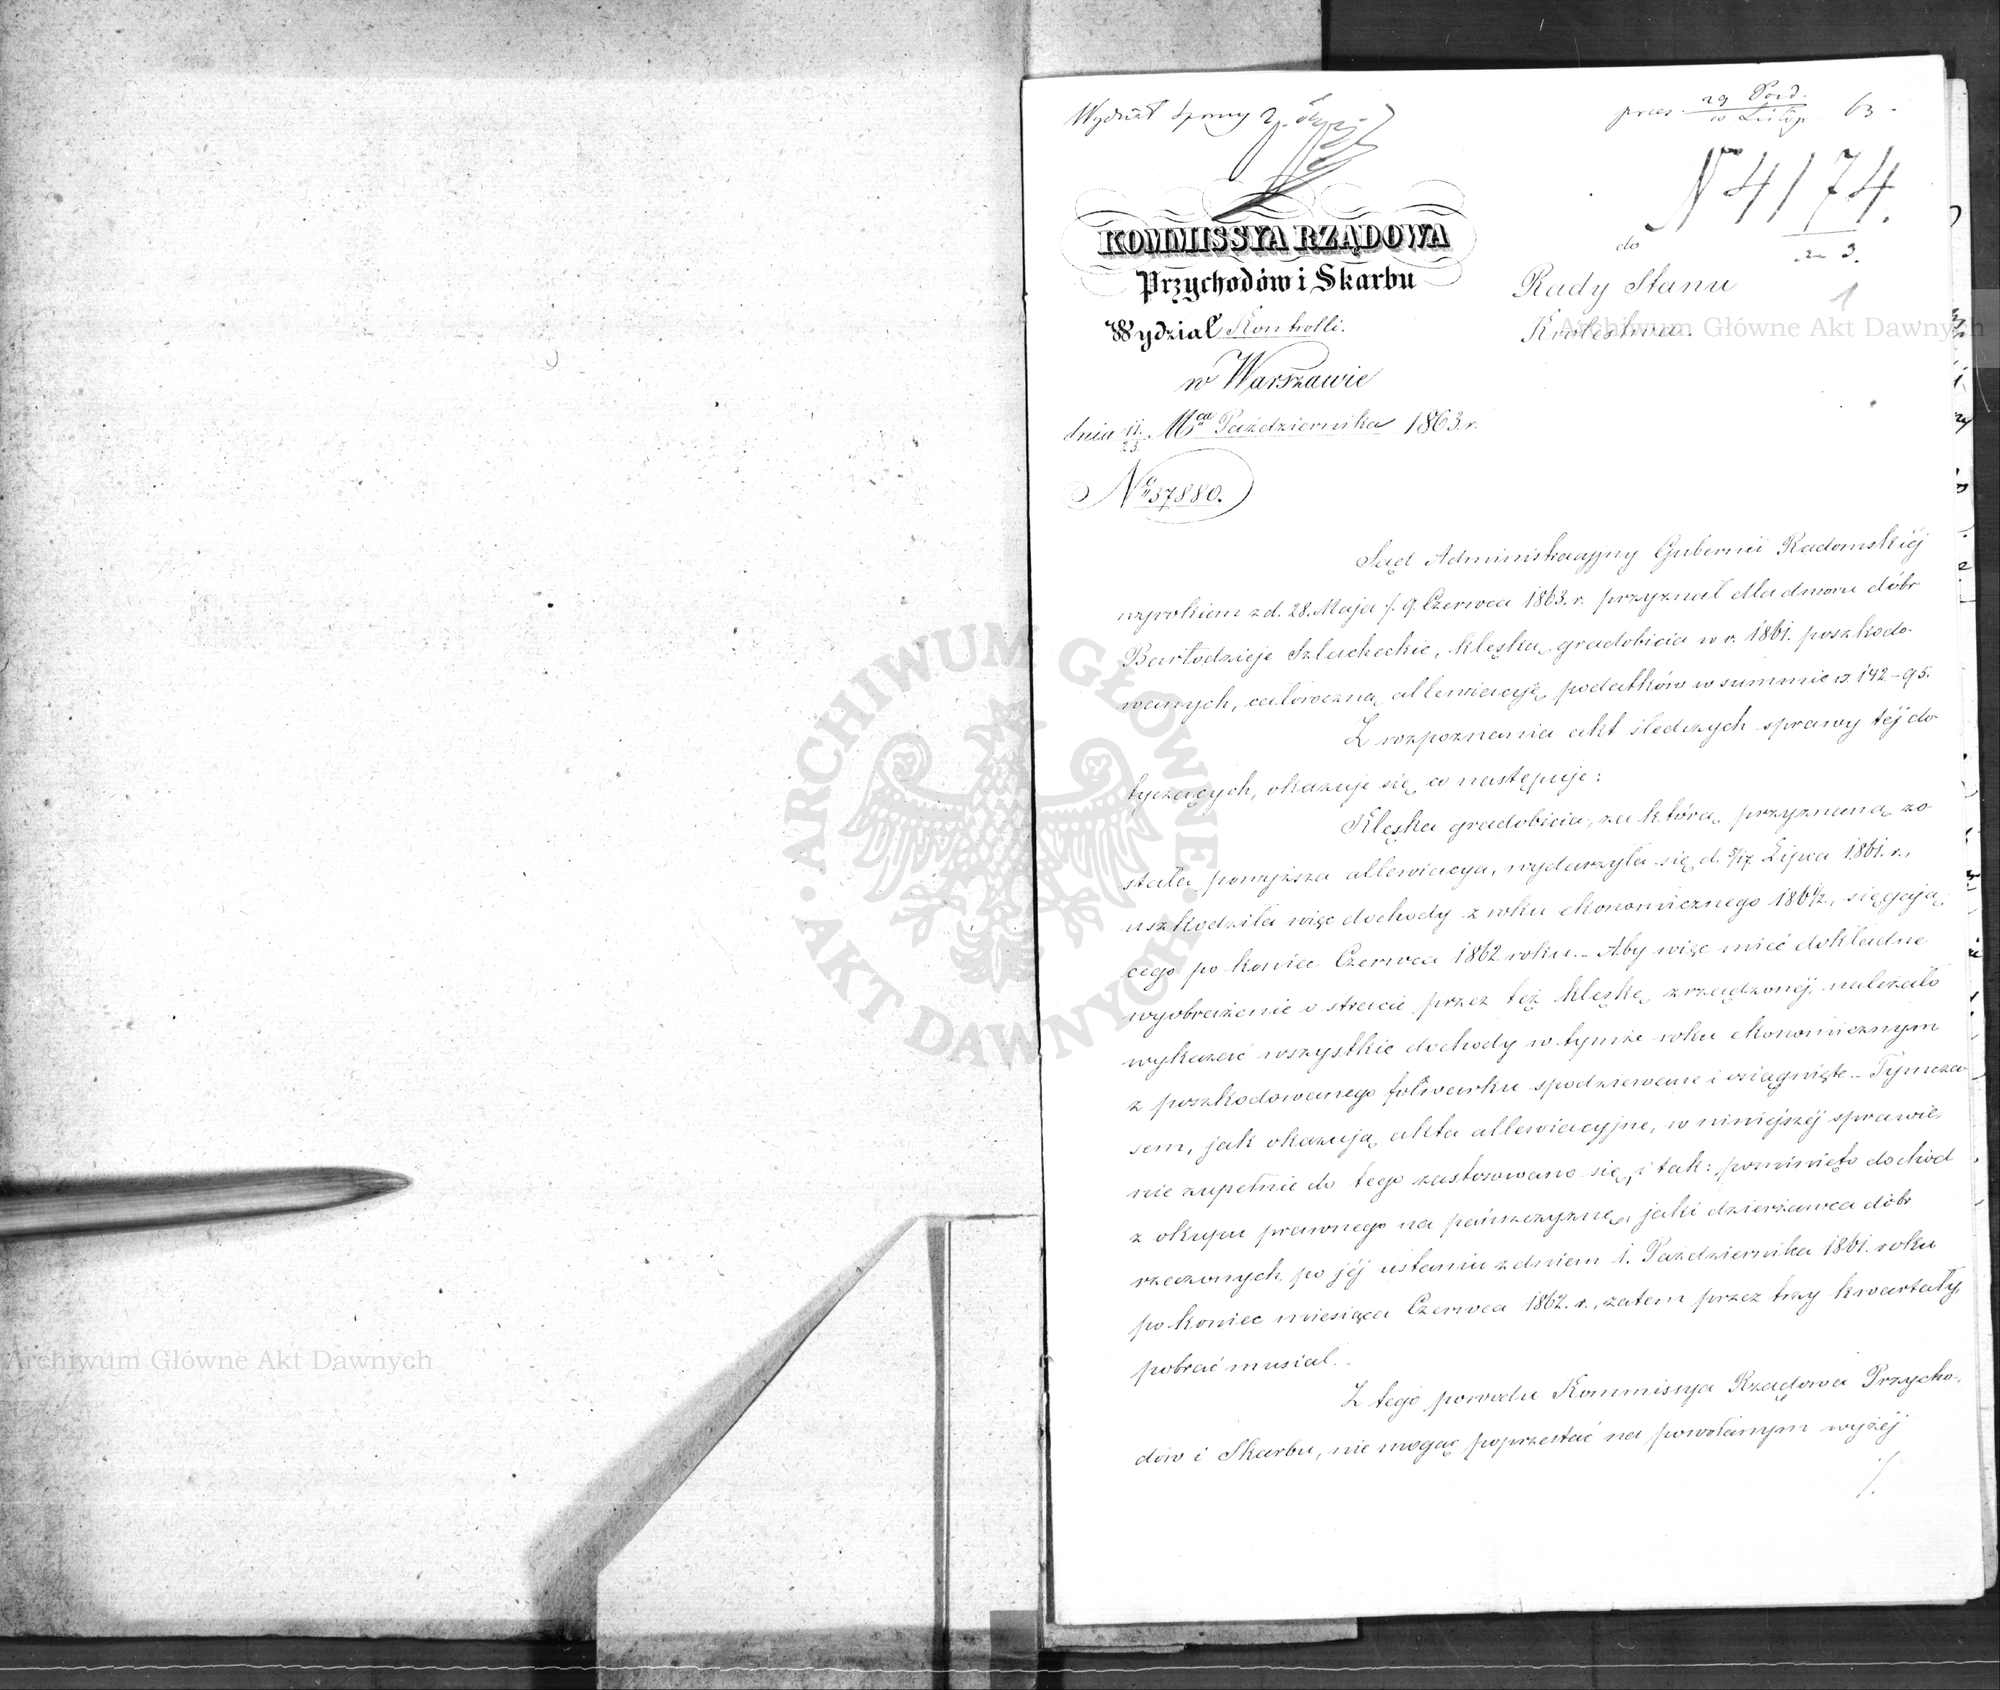 Wydział Spraw
pres. 29 Paźd. / 10 Listop. 63.
N 4174.
KOMMISSYA RZĄDOWA
Przychodów i Skarbu
Wydział Kontrolli.
w Warszawie
dnia 11/23 Mca Października 1863 r.
No 37880.
do
Rady Stanu
Królestwa.
3.
1
Sąd Administracyjny Gubernii Radomskiéj
wyrokiem z d. 28. Maja /. 9. Czerwca 1863. r. przyznał dla dworu dóbr
Bartodzieje Szlacheckie, klęską gradobicia w r. 1861. poszkodo-
wanych, całoroczną allewiacyę podatków w summie rs 142-95.
Z rozpoznania akt śledczych sprawy téj do
tyczących, okazuje się co następuje:
Klęska gradobicia, za którą przyznaną zo
stała powyższa allewiacya, wydarzyła się d. 5/17 Lipca 1861. r.,
uszkodziła więc dochody z roku ekonomicznego 1861/2, sięgają
cego po koniec Czerwca 1862 roku. - Aby więc mieć dokładne
wyobrażenie o stracie przez też klęskę zrządzonéj, należało
wykazać wszystkie dochody w tymże roku ekonomicznym
z poszkodowanego folwarku spodziewane i osiągnięte. - Tymcza
sem, jak okazują akta allewiacyjne, w niniejszéj sprawie,
nie zupełnie do tego zastosowano się, i tak: pominięto dochód
z okupu prawnego na pańszczyznę, jaki dzierżawca dóbr
rzeczonych po jéj ustaniu z dniem 1. Października 1861. roku
po koniec miesiąca Czerwca 1862. r., zatem przez trzy kwartały,
pobrać musiał.
Z tego powodu Kommissya Rządowa Przycho-
dów i Skarbu, nie mogąc poprzestać na powołanym wyżéj
./.
ARCHIWUM GŁÓWNE AKT DAWNYCH
Archiwum Główne Akt Dawnych
Archiwum Główne Akt Dawnych